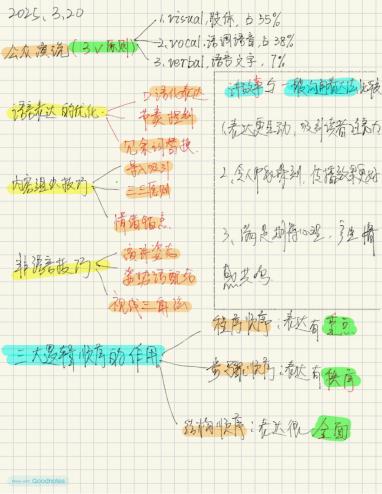 2025.3.20
公众演说(3V原则)
1.visual,肢体,占55%
2.vocal,语调语音,占38%
3.verbal,语言文字,7%
语言表达的优化
口语化表达
节奏控制
冗余词替换
内容组织技巧
导入吸引
三三原则
情者
非语言技巧
演讲姿态
手势语配合
视线三角法
讲故事与一般
1.表达更生动,吸引读者注意力
2.令人印象深刻,传播效果更好
3.满足期待心理,产生情
感共鸣
三大逻辑顺序的作用
程序顺序:表达有重点
步骤顺序:表达有秩序
结构顺序:表达很全面
Made with Goodnotes